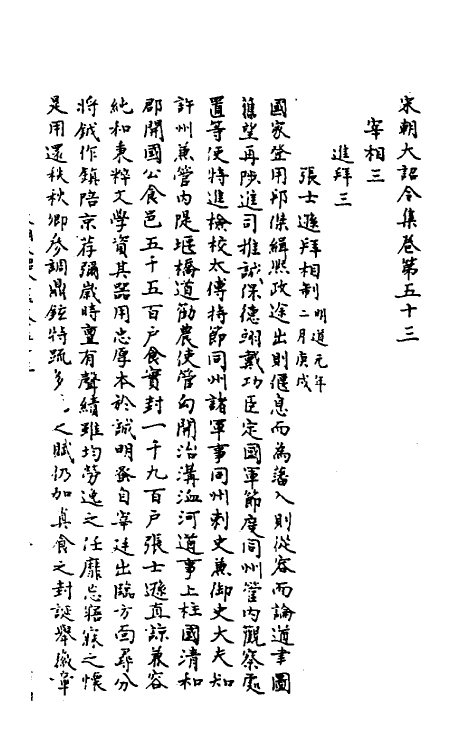 宋朝大詔令集卷第五十三
宰相三
進拜三
張士遜拜相制 明道元年二月庚戌
國家登用邦傑緝熙政途出則偃息而為藩入則從容而論道聿圖
舊望再陟進司推誠保德翊戴功臣定國軍節度同州管內觀察處
置等使特進檢校太傅持節同州諸軍事同州刺史兼御史大夫知
許州兼管內隄堰橋道勸農使管勾開治溝洫河道事上柱國清和
郡開國公食邑五千五百戶食實封一千九百戶張士遜直諒兼容
純和秉粹文學資其器用忠厚本於誠明蚤自宰廷出臨方面尋分
將鉞作鎮陪京荐彌歲時亶有聲績雖均勞逸之任靡忘寤寐之懷
是用還秩秋卿參調鼎鉉特疏多之賦仍加真食之封誕舉徽章